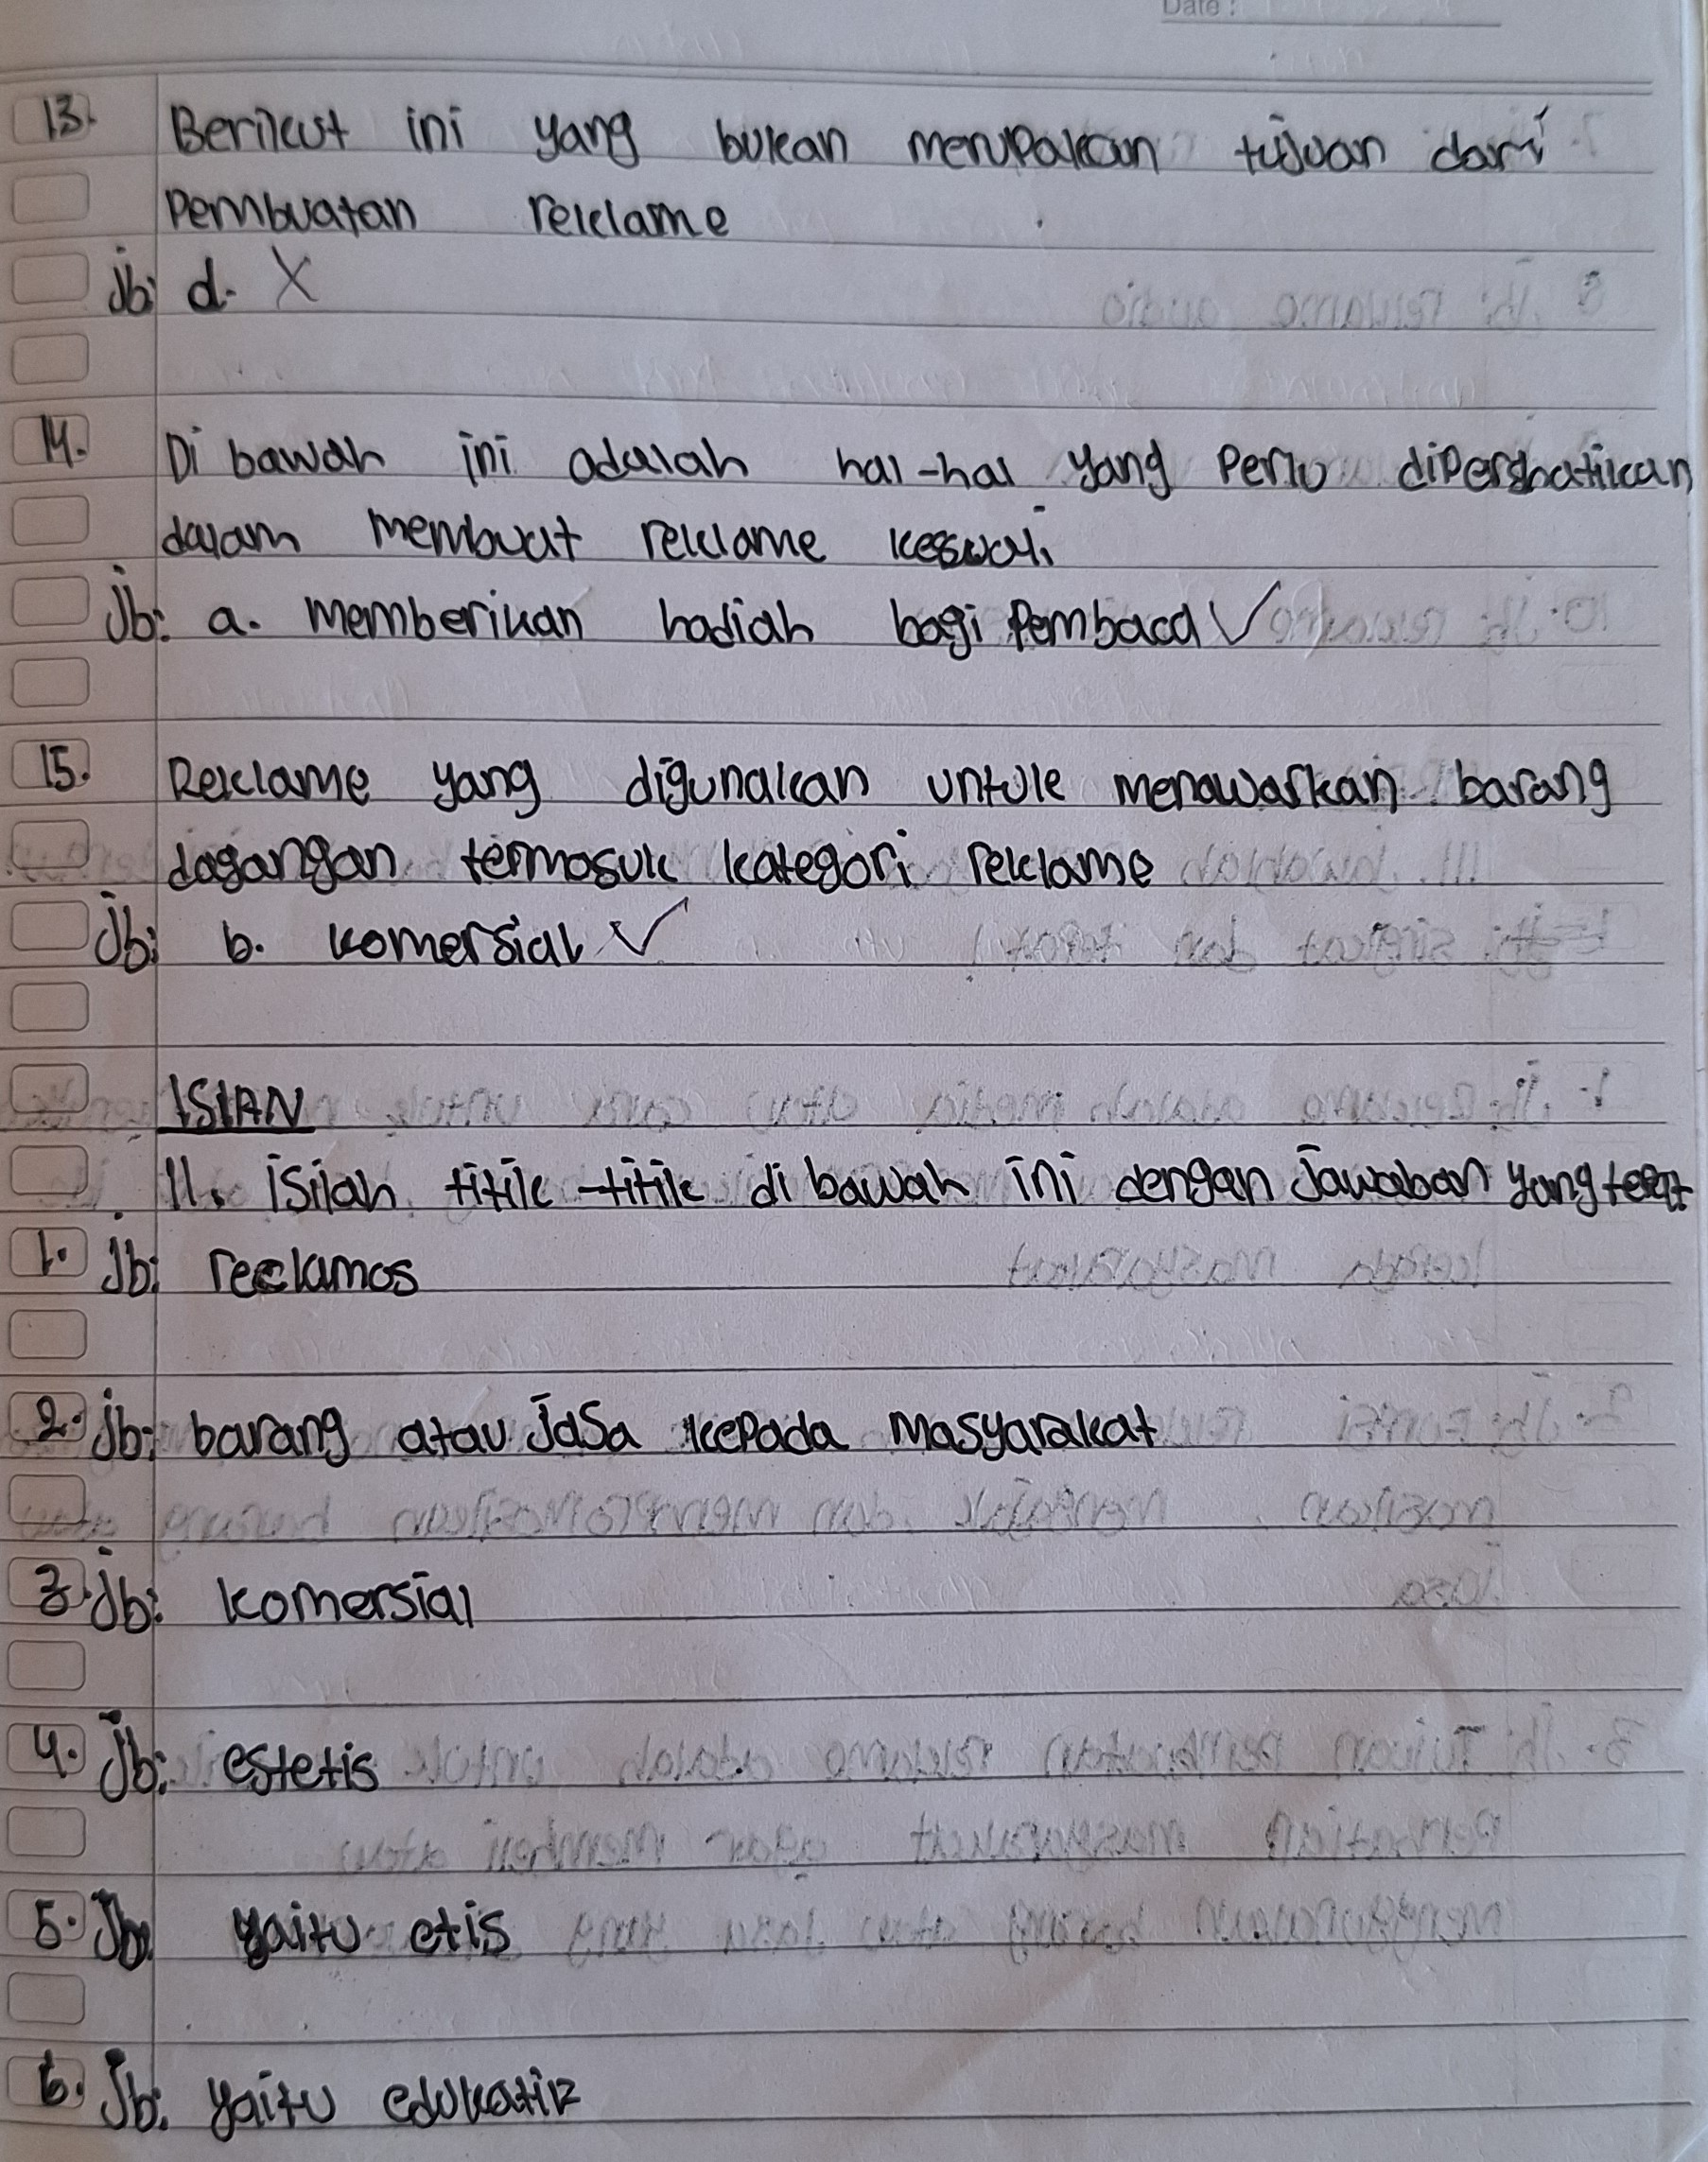 Date :
13. Berikut ini yang bukan merupakan tujuan dari
Pembuatan reklame
Jb: d. X
14. Di bawah ini adalah hal-hal yang Perlu diperhatikan
dalam membuat reklame kecuali
Jb: a. memberikan hadiah bagi Pembaca ✓
15. Reklame yang digunakan untuk menawarkan barang
dagangan termasuk kategori reklame
Jb: b. komersial ✓
ISIAN
II. isilah titik-titik di bawah ini dengan Jawaban yang tepat
1. Jb: reclamos
2. Jb: barang atau Jasa kepada Masyarakat
3. Jb: komersial
4. Jb: estetis
5. Jb: yaitu etis
6. Jb: yaitu edukatif